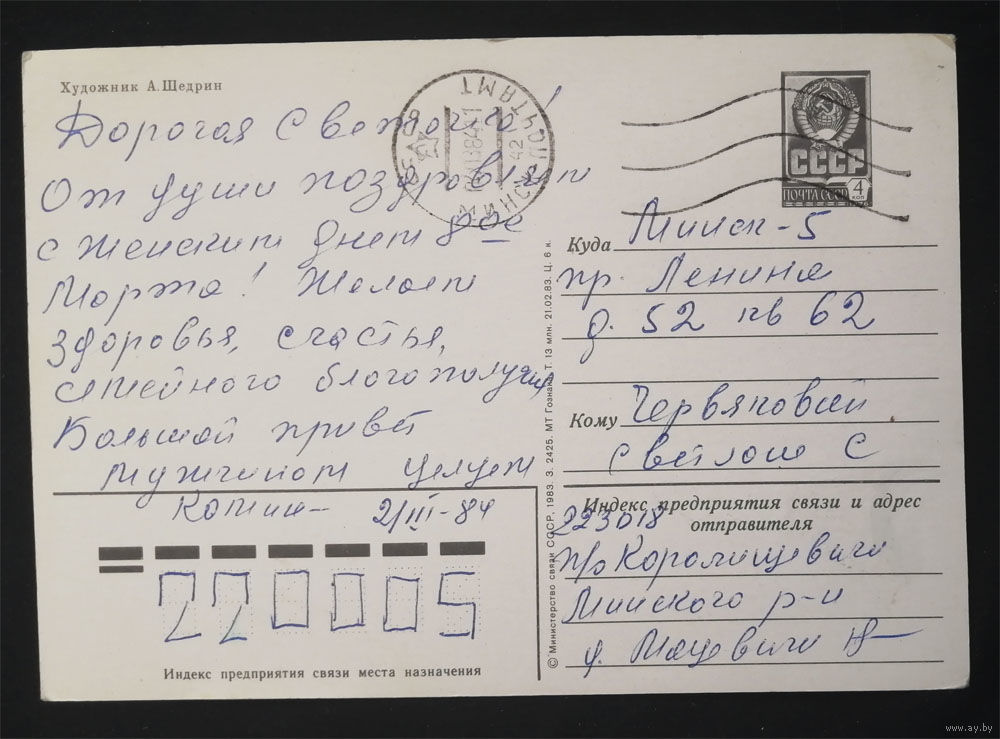 Художник А. Щедрин
Дорогая Светлана!
От души поздравляем
с женским днем 8ое
Марта! Желаем
здоровья, счастья,
семейного благополучия
Большой привет
мужчинам целуем
2/III-84
220005
Индекс предприятия связи места назначения
© Министерство связи СССР, 1983. З. 2425. МТ Гознака. Т. 13 млн. 21.02.83. Ц. 6 к.
МИНСК ПОЧТАМТ
42
СССР
ПОЧТА СССР
4 коп
1978
Куда Минск-5
пр. Ленина
д. 52 кв 62
Кому Червяковой
Светлане С
Индекс предприятия связи и адрес отправителя
223018
п/о Королищевичи
Минского р-н
д.
www.ay.by